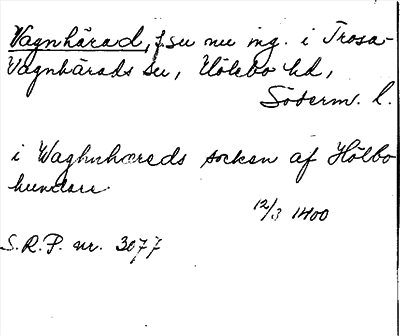 Vagnhärad, f. su nu ing. i Trosa-
Vagnhärads su, Hölebo hd,
Söderm. l.
i Waghnhæreds sokcen af Hölbo
hundare
12/3 1400
S.R.P. nr. 3077